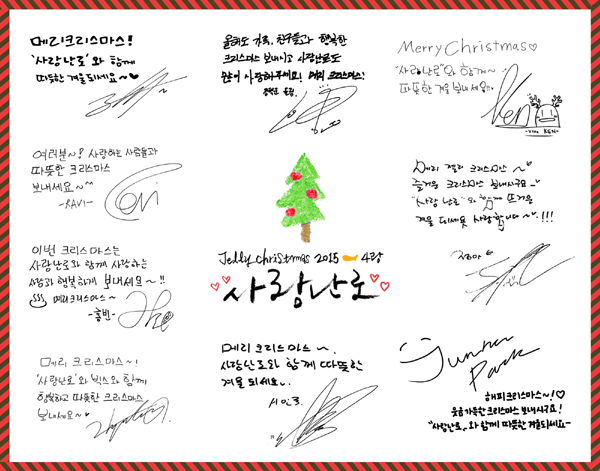 메리크리스마스!
'사랑난로'와 함께
따뜻한 겨울되세요~♡
올해도 가족, 친구들과 행복한
크리스마스 보내시고 사랑난로도
많이 사랑해주세요! 메리 크리스마스!
Merry Christmas♡
"사랑난로"와 함께~
따뜻한 겨울 보내세요!!
Ken
-VIXX KEN-
여러분~? 사랑하는 사람들과
따뜻한 크리스마스
보내세요~^^
-RAVI-
Ravi
메리 크리스마스~
즐거운 크리스마스 보내시구요~
"사랑 난로"와 함께 뜨거운
겨울 되세요 사랑합니다~!!!
이번 크리스마스는
사랑난로와 함께 사랑하는
사람과 행복하게 보내세요~!!
메리크리스마스~
-홍빈-
Jelly christmas 2015 4랑
사랑난로
메리 크리스마스~!
'사랑난로'와 빅스와 함께
행복하고 따뜻한 크리스마스
보내세요~♡
메리 크리스마스~.
사랑난로와 함께 따뜻한
겨울 되세요~
서인국
Junher Park
해피크리스마스~!♡
웃음가득한 크리스마스 보내시구요!
"사랑난로"와 함께 따뜻한 겨울되세요~